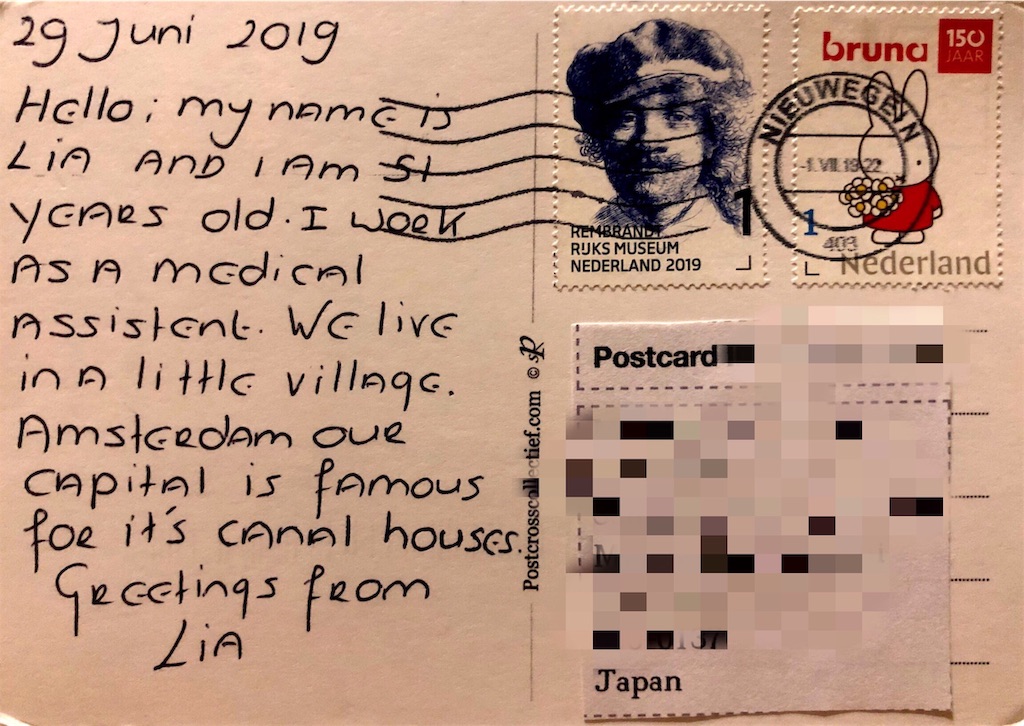 29 Juni 2019
Hello; my name is
Lia and I am 51
years old. I work
as a medical
assistent. We live
in a little village.
Amsterdam our
capital is famous
for it's canal houses.
Greetings from
Lia
REMBRANDT
RIJKS MUSEUM
NEDERLAND 2019
1
bruna
150
JAAR
NIEUWEGEIN
-1.VII.19.22
403
1
Nederland
Postcrosscollectief.com ©
Postcard
Japan